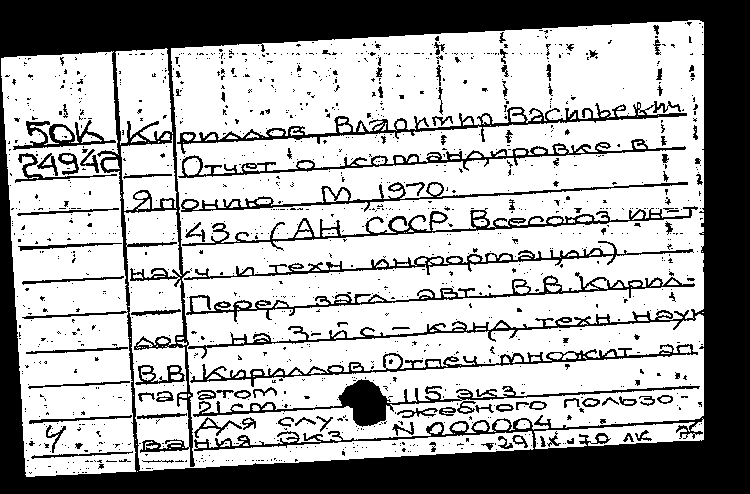 50К Кириллов, Владимир Васильевич.
24942 Отчет о командировке в
Японию. М., 1970.
43с. (АН СССР. Всесоюз ин-т
науч. и техн. информации).
Перед загл. авт.: В.В. Кирил-
лов; на 3-й с. – канд. техн. наук
В.В. Кириллов. Отпеч. множит ап-
паратом. 115 экз.
21 cm.
Для служебного пользо-
Ч вания. Экз. N 000004.
29/IX-70 ЛК